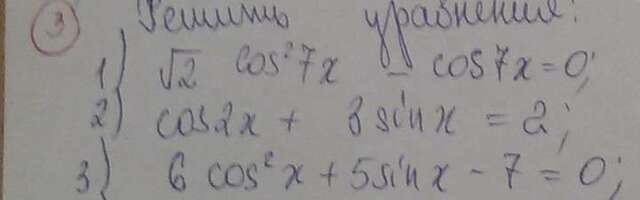 3 Решить уравнения:
1) √2 cos²7x - cos7x = 0;
2) cos2x + 3sinx = 2;
3) 6 cos²x + 5sinx - 7 = 0;